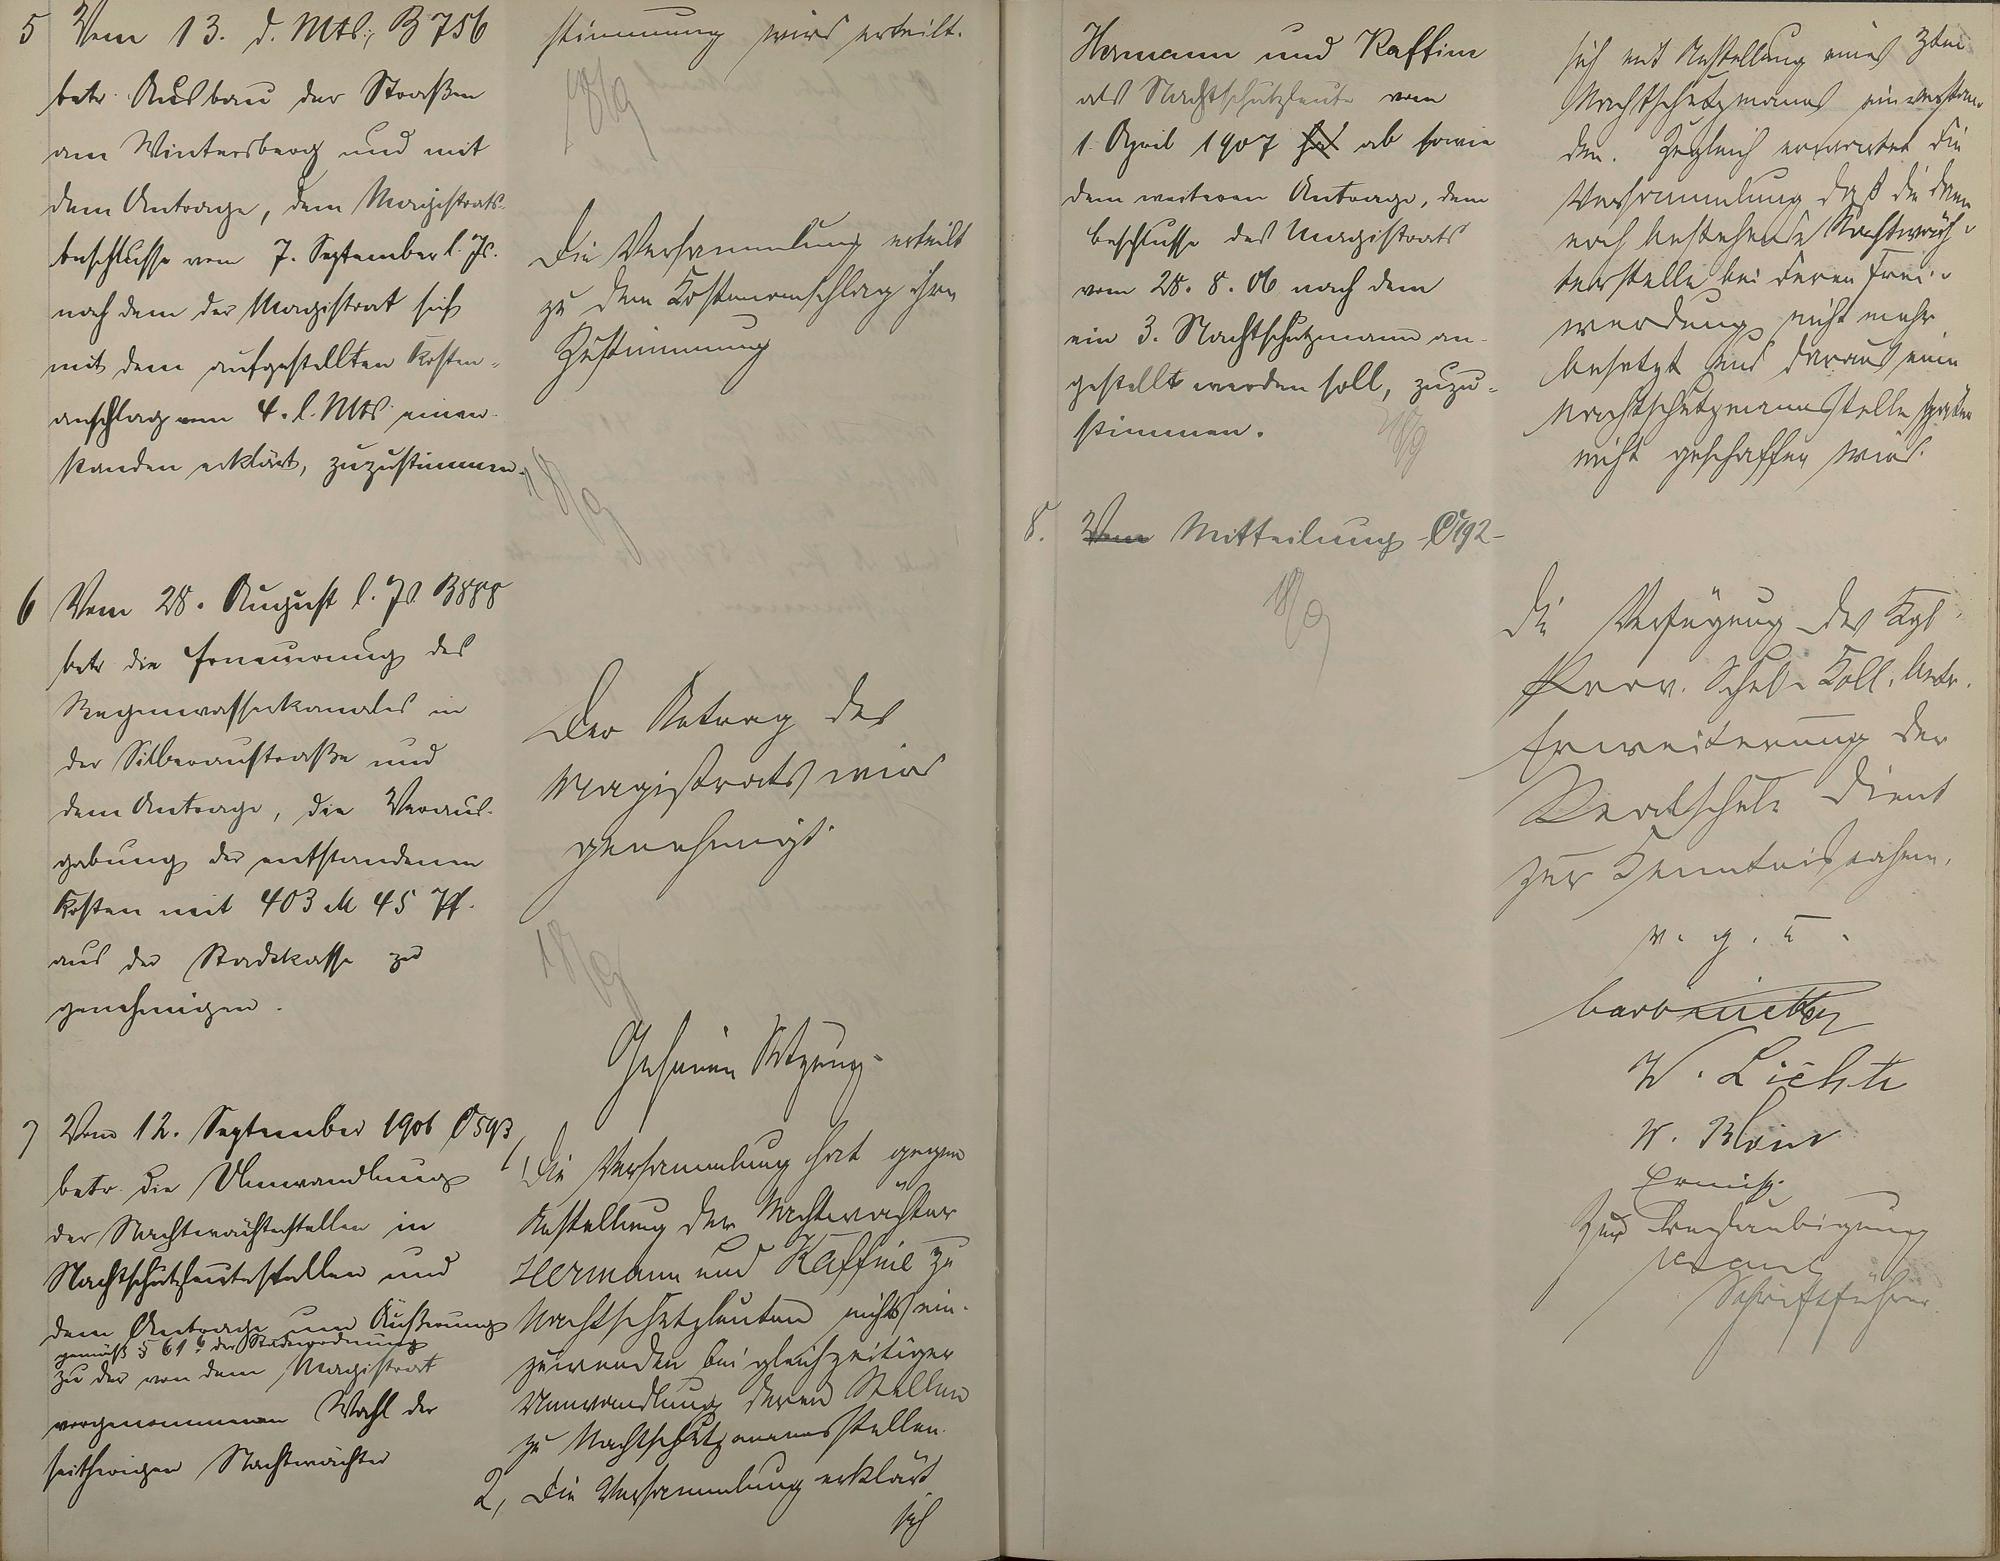 5 Vom 13. d. Mts., B 756
betr. Ausbau der Straßen
am Wintersberg und mit
dem Antrage, dem Magistrats-
beschlusse vom 7. September l. Js.
nach dem der Magistrat sich
mit dem aufgestellten Kosten-
anschlag vom 4. l. Mts. einver-
standen erklärt, zuzustimmen.
6 Vom 28. August l. Js. B 888
betr. die Erneuerung des
Regenwasserkanales in
der Silberaustraße und
dem Antrage, die Veraus-
gabung der entstandenen
Kosten mit 403 M 45 Pf.
aus der Stadtkasse zu
genehmigen.
7 Vom 12. September 1906 C 593
betr. die Umwandlung
der Nachtwächterstellen in
Nachtschutzleutestellen und
dem Antrage um Äußerung
gemäß § 61 6 der Städteordnung
zu der von dem Magistrat
vorgenommenen Wahl der
seitherigen Nachtwächter
stimmung wird erteilt.
18/9
Die Versammlung erteilt
zu dem Kostenanschlag ihre
Zustimmung
18/9
Der Antrag des
Magistrats wird
genehmigt.
18/9
Geheime Sitzung.
1, Die Versammlung hat gegen
Anstellung der Nachtwächter
Hermann und Kaffine zu
Nachtschutzleuten nichts ein-
zuwenden bei gleichzeitiger
Umwandlung deren Stellen
zu Nachtschutzmannsstellen.
2, Die Versammlung erklärt
sich
Hermann und Kaffine
als Nachtschutzleute vom
1. April 1907 ab sowie
dem weiteren Antrage, dem
Beschlusse des Magistrats
vom 28. 8. 06 nach dem
ein 3. Nachtschutzmann an-
gestellt werden soll, zuzu-
stimmen.
18/9
8. Vom Mitteilung C 192-
18/9
sich mit Anstellung eines 3ten
Nachtschutzmannes einverstan-
den. Zugleich erwartet die
Versammlung daß die dann
noch bestehende Nachtwäch-
terstelle bei deren Frei-
werdung nicht mehr
besetzt und daraus eine
Nachtschutzmannsstelle später
nicht geschaffen wird.
Die Verfügung des Kgl.
Prov. Schul-Koll. betr.
Erweiterung der
Realschule dient
zur Kenntnisnahme.
v. g. u.
W. Lichte
Zur Beglaubigung
Schriftführer